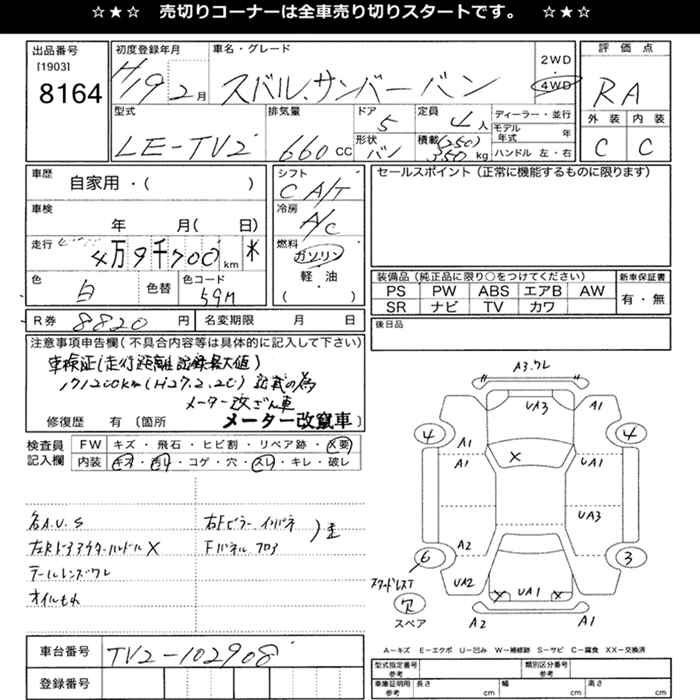 ☆★☆ 売切りコーナーは全車売り切りスタートです。 ☆★☆
出品番号
[1903]
8164
初度登録年月
H19 2月
車名・グレード
スバル.サンバーバン
2WD
・
4WD
評価点
RA
外装 内装
C C
型式
LE-TV2
排気量
660cc
ドア
5
形状
バン
定員
4人
積載(250)
350kg
ディーラー・並行
モデル年式 年
ハンドル 左・右
車歴
自家用・( )
車検
年 月( 日)
走行
4万9千700km *
色
白
色替
色コード
59M
シフト
C A/T
冷房
A/C
燃料
ガソリン
軽・油
( )
セールスポイント(正常に機能するものに限ります)
装備品(純正品に限り○をつけてください)
PS PW ABS エアB AW
SR ナビ TV カワ
新車保証書
有・無
後日品
R券 8820円
名変期限 月 日
注意事項申告欄(不具合内容等は具体的に記入して下さい)
車検証(走行距離記録最大値)
171200km(H27.2.20)記載の為
メーター改ざん車
修復歴 有(箇所 メーター改竄車)
検査員記入欄
FW キズ・飛石・ヒビ割・リペア跡・X要
内装 キズ・汚れ・コゲ・穴・スレ・キレ・破レ
各A.U.S
左Rドアアウターハンドル X
テールレンズワレ
オイルもれ
右Fピラー.インパネ
Fパネル フロア
A3.ワレ
UA3
4
A1
A1
A1
4
X
UA1
UA3
A2
6
A2
UA1
3
UA2
X UA1 X
A1
スタッドレスT
ア
スペア
A2
A1
A-キズ E-エクボ U-凹み W-補修跡 S-サビ C-腐食 XX-交換済
車台番号
TV2-102908
登録番号
型式指定番号
参考
類別区分番号
参考
車庫証明用
参考
長さ cm
幅 cm
高さ cm